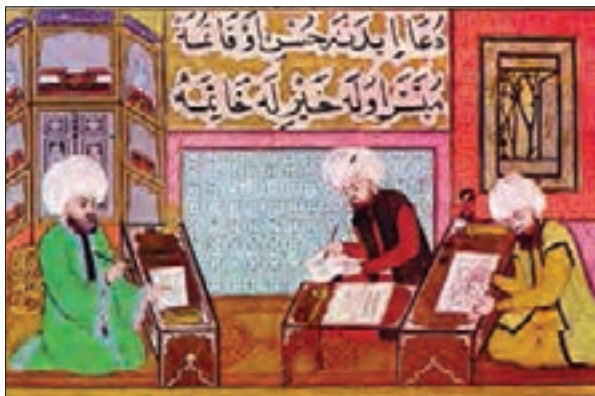 دُعَا اِيدَنَه حُسْنِ اَوْقَاتِمَهْ
مُيَسَّر اوَلَه خَيْرِ لَه خَاتِمَهْ